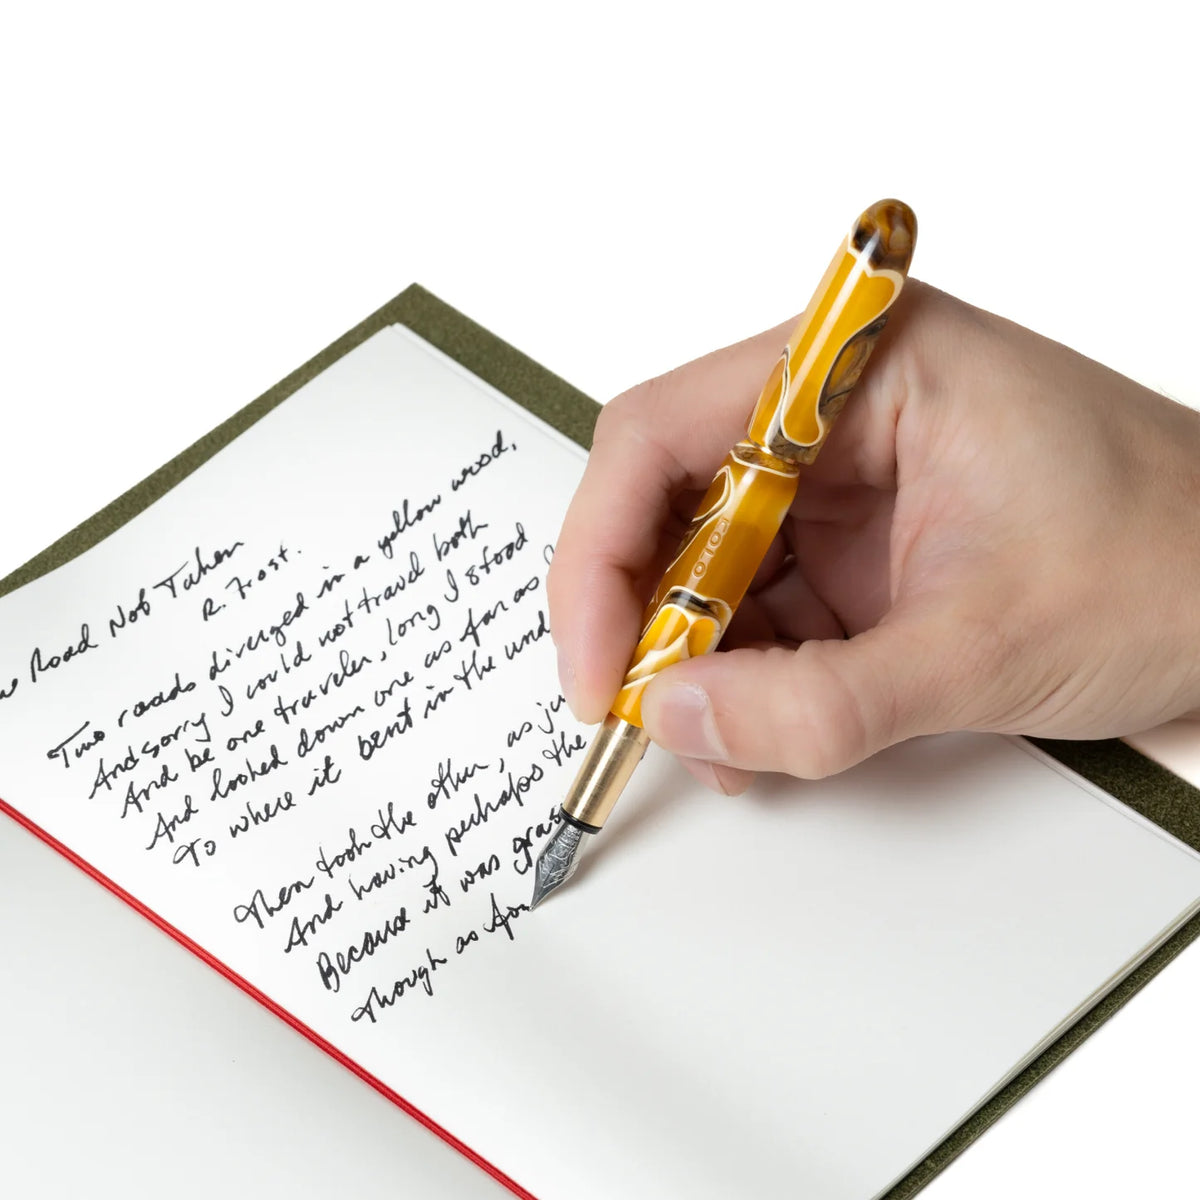 Road Not Taken
R. Frost.
Two roads diverged in a yellow wood,
And sorry I could not travel both
And be one traveler, long I stood
And looked down one as far as
To where it bent in the und
Then took the other, as ju
And having perhaps the
Because it was gras
Though as for
POLO